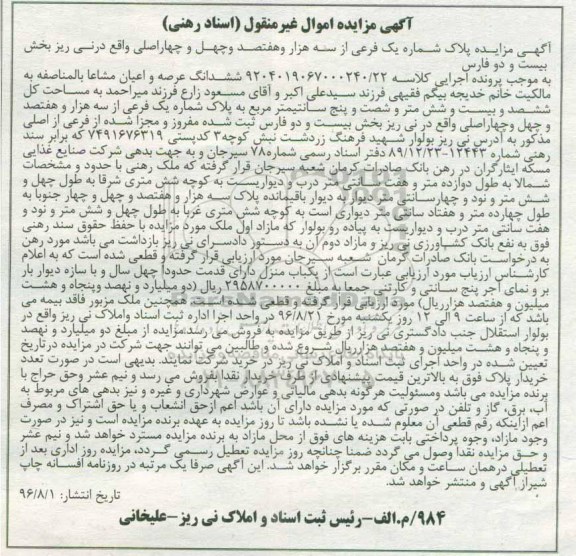 آگهی مزایده اموال غیرمنقول (اسناد رهنی)
آگهی مزایده پلاک شماره یک فرعی از سه هزار وهفتصد وچهل و چهاراصلی واقع درنی ریز بخش
بیست و دو فارس
به موجب پرونده اجرایی کلاسه ۹۲۰۴۰۱۹۰۶۷۰۰۰۲۴۰/۲۲ ششدانگ عرصه و اعیان مشاعا بالمناصفه به
مالکیت خانم خدیجه بیگم فقیهی فرزند سیدعلی اکبر و آقای مسعود زارع فرزند میراحمد به مساحت کل
ششصد و بیست و شش متر و شصت و پنج سانتیمتر مربع به پلاک شماره یک فرعی از سه هزار و هفتصد
و چهل وچهاراصلی واقع در نی ریز بخش بیست و دو فارس ثبت شده مفروز و مجزا شده از فرعی از اصلی
مذکور به آدرس نی ریز بولوار شهید فرهنگ زردشت نبش کوچه۳ کدپستی ۷۴۹۱۶۷۶۳۱۹ که برابر سند
رهنی شماره ۱۲۴۴۳-۸۹/۱۲/۲۳ دفتر اسناد رسمی شماره۷۸ سیرجان و به جهت بدهی شرکت صنایع غذایی
مسکه ایثارگران در رهن بانک صادرات کرمان شعبه سیرجان قرار گرفته که ملک رهنی با حدود و مشخصات
شمالا به طول دوازده متر و هفتاد سانتی متر درب و دیواریست به کوچه شش متری شرقا به طول چهل و
شش متر و نود و چهارسانتی متر دیوار به دیوار باقیمانده پلاک سه هزار و هفتصد و چهل و چهار جنوبا به
طول چهارده متر و هفتاد سانتی متر دیواری است به کوچه شش متری غربا به طول چهل و شش متر و نود و
هفت سانتی متر درب و دیواریست به پیاده رو بولوار که مازاد اول ملک مورد مزایده با حفظ حقوق سند رهنی
فوق به نفع بانک کشاورزی نی ریز و مازاد دوم آن به دستور دادسرای نی ریز بازداشت می باشد مورد رهن
به درخواست بانک صادرات کرمان شعبه سیرجان مورد ارزیابی قرار گرفته و قطعی شده است که به اعلام
کارشناس ارزیاب مورد ارزیابی عبارت است از یکباب منزل دارای قدمت حدودا چهل سال و با سازه دیوار بار
بر و نمای آجر پنج سانتی و کارتنی جمعا به مبلغ ۲۹۵۸۷۰۰۰۰۰ ریال (دو میلیارد و نهصد وپنجاه و هشت
میلیون و هفتصد هزارریال) مورد ارزیابی قرار گرفته و قطعی شده است همچنین ملک مزبور فاقد بیمه می
باشد که از ساعت ۹ الی ۱۲ روز یکشنبه مورخ ۹۶/۸/۲۱ در واحد اجرا اداره ثبت اسناد واملاک نی ریز واقع در
بولوار استقلال جنب دادگستری نی ریز از طریق مزایده به فروش می رسد مزایده از مبلغ دو میلیارد و نهصد
و پنجاه و هشت میلیون و هفتصد هزارریال شروع شده و طالبین می توانند جهت شرکت در مزایده درتاریخ
تعیین شده در واحد اجرای ثبت اسناد و املاک نی ریز در خرید شرکت نمایند. بدیهی است در صورت تعدد
خریدار پلاک فوق به بالاترین قیمت پیشنهادی از طرف خریدار نقدا بفروش می رسد و نیم عشر وحق حراج با
برنده مزایده می باشد ومسئولیت هرگونه بدهی مالیاتی و عوارض شهرداری و غیره و نیز بدهی های مربوط به
آب، برق، گاز و تلفن در صورتی که مورد مزایده دارای آن باشد اعم ازحق انشعاب و یا حق اشتراک و مصرف
اعم ازاینکه رقم قطعی آن معلوم شده یا نشده باشد تا روز مزایده به عهده برنده مزایده است و نیز در صورت
وجود مازاد، وجوه پرداختی بابت هزینه های فوق از محل مازاد به برنده مزایده مسترد خواهد شد و نیم عشر
و حق مزایده نقدا وصول می گردد ضمنا چنانچه روز مزایده تعطیل رسمی گردد، مزایده روز اداری بعد از
تعطیلی درهمان ساعت و مکان مقرر برگزار خواهد شد. این آگهی صرفا یک مرتبه در روزنامه افسانه چاپ
شیراز آگهی و منتشر خواهد شد.
تاریخ انتشار: ۹۶/۸/۱
۹۸۴/م.الف-رئیس ثبت اسناد و املاک نی ریز-علیخانی